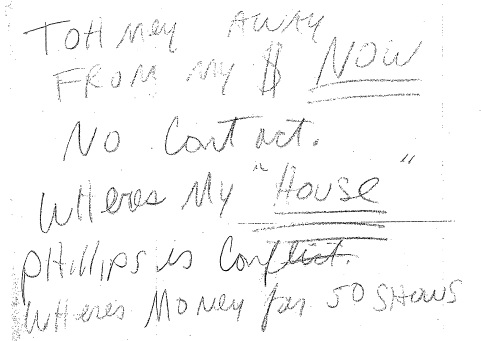 TOHMEY AWAY
FROM MY $ NOW
No Contact.
WHeres My "House"
PHillips is Conflict.
WHeres Money for 50 SHOWS